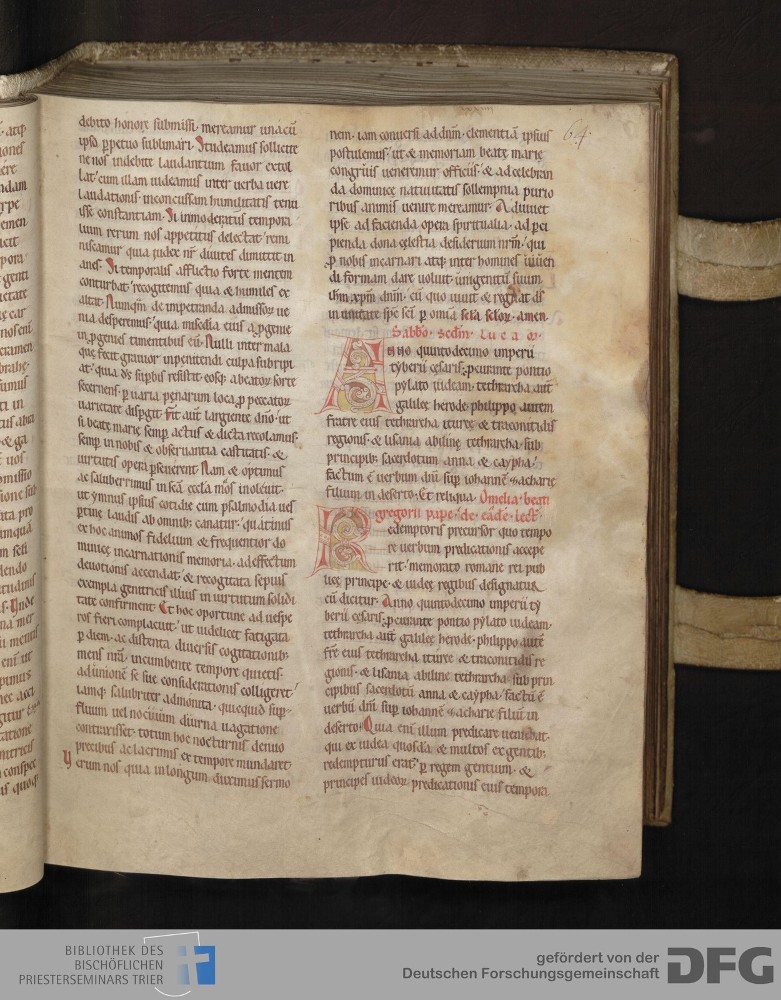 debito honore submissi. mereamur una cū
ipso ꝑpetuo sublimari. Studeamus sollicite
ne nos indebite laudantium fauor extol
lat. cum illam uideamus inter uerba uere
laudationis inconcussam humilitatis tenu
isse constantiam. Si inmoderatus tempora
lium rerum nos appetitus delectat. remi
niscamur quia iudex nr̄ diuites dimittit in
anes. Si temporalis afflictio forte mentem
conturbat. recogitemus quia & humiles ex
altat. Nunqm̄ de impetranda admissorꝝ ue
nia desperemus. quia misc̄dia eius a ꝓgenie
in ꝓgenies timentibus eū. Nulli inter mala
quę fecit grauior inpenitendi culpa subripi
at. quia d̄s suꝑbis resistit. eosq; a beatorꝝ sorte
secernens. ꝑ uaria pęnarum loca ꝓ peccatorꝝ
uarietate disꝑgit. Fit aut̄ largiente dn̄o. ut
si beatę marię semꝑ actus & dicta recolamus.
semꝑ in nobis & obseruantia castitatis. &
uirtutis opera ꝑseuerent. Nam & optimus
ac saluberrimus in sc̄a eccl̄a mos inoleuit.
ut ymnus ipsius cotidie cum psalmodia ues
ꝑtinę laudis ab omnib; canatur. quatinus
ex hoc animos fidelium & frequentior do
minicę incarnationis memoria. ad effectum
deuotionis accendat. & recogitata sępius
exempla genitricis illius in uirtutum solidi
tate confirment. Et hoc oportune ad uespe
ros fieri complacuit. ut uidelicet fatigata
ꝑ diem. ac distenta diuersis cogitationib;
mens nr̄a. incumbente tempore quietis.
ad unionē se suę considerationis colligeret.
iamq; salubriter admonita. quicquid suꝑ
fluum uel nociuum diurna uagatione
contraxisset. totum hoc nocturnis denuo
precibus ac lacrimis ex tempore mundaret.
Verum nos quia in longum duximus sermo
nem. iam conuersi ad dn̄m. clementiā ipsius
postulemus. ut & memoriam beatę marię
congruis ueneremur officiis. & ad celebran
da dominicę natiuitatis sollempnia purio
ribus animis uenire mereamur. Adiuuet
ipse ad facienda opera spiritualia. ad ꝑci
pienda dona cęlestia desiderium nr̄m. qui
ꝓ nobis incarnari atq; inter homines uiuen
di formam dare uoluit. unigenitū suum
ih̄m xp̄m dn̄m. cū quo uiuit & regnat d̄s
in unitate sp̄c sc̄i ꝑ omīa sc̄la sc̄lorꝝ. amen.
64
Sabbō. Secdm̄. Lucam.
Anno quintodecimo imperii
tyberii cęsaris. ꝓcurante pontio
pylato iudeam. tethrarcha aut̄
galileę herode. philippo autem
fratre eius tethrarcha itureę & traconitidis
regionis. & lisania abilinę tethrarcha. sub
principib; sacerdotum anna & caypha.
factum ē uerbum dn̄i suꝑ iohannē zacharię
filium in deserto. Et reliqua. Omelia beati
gregorii pape. de eadē lect̄.
Redemptoris precursor quo tempo
re uerbum predicationis accepe
rit. memorato romanę rei pub
licę principe. & iudeę regibus designatur.
cū dicitur. Anno quintodecimo imperii ty
berii cęsaris. ꝓcurante pontio pylato iudeam.
tethrarcha aut̄ galileę herode. philippo autē
fr̄e eius tethrarcha itureę & traconitidis re
gionis. & lisania abilinę tethrarcha. sub prin
cipibus sacerdotū anna & caypha. factū ē
uerbū dn̄i suꝑ iohannē zacharię filiū in
deserto. Quia enī illum predicare ueniebat.
qui ex iudea quosdā. & multos ex gentib;
redempturus erat. ꝑ regem gentium. &
principes iudeorꝝ predicationis eius tempora
BIBLIOTHEK DES
BISCHÖFLICHEN
PRIESTERSEMINARS TRIER
gefördert von der
Deutschen Forschungsgemeinschaft
DFG